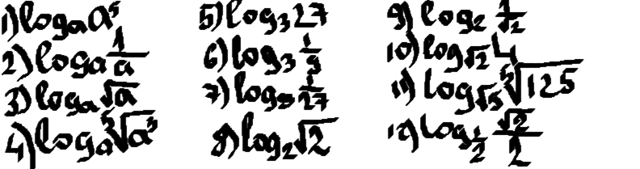 1) logₐ a⁵
2) logₐ 1/a
3) logₐ √a
4) logₐ ⁵√a³
5) log₃ 27
6) log₃ 1/9
7) log₃ 1/27
8) log₂ √2
9) log₂ 1/√2
10) log_√2 4
11) log_√5 ⁵√125
12) log_1/2 √2/2